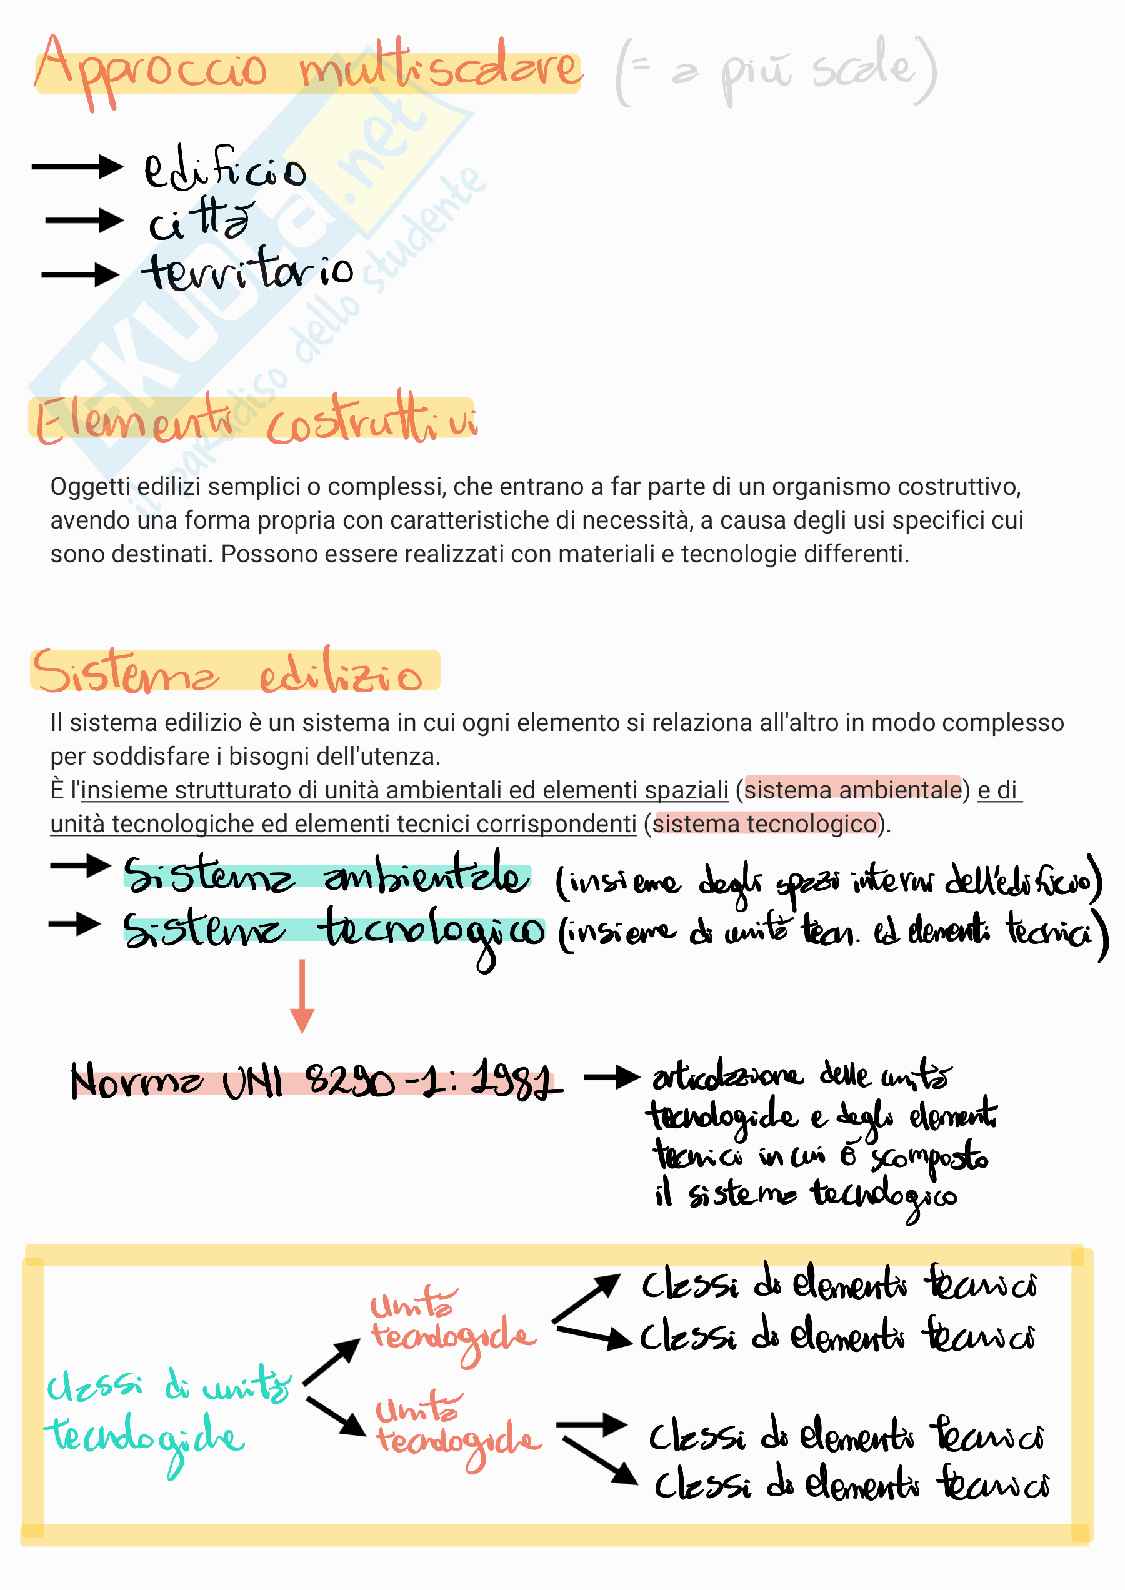 Approccio multiscalare (= a più scale)
edificio
città
territorio
SKUOLA.net
il paradiso dello studente
Elementi costruttivi
Oggetti edilizi semplici o complessi, che entrano a far parte di un organismo costruttivo,
avendo una forma propria con caratteristiche di necessità, a causa degli usi specifici cui
sono destinati. Possono essere realizzati con materiali e tecnologie differenti.
Sistema edilizio
Il sistema edilizio è un sistema in cui ogni elemento si relaziona all'altro in modo complesso
per soddisfare i bisogni dell'utenza.
È l'insieme strutturato di unità ambientali ed elementi spaziali (sistema ambientale) e di
unità tecnologiche ed elementi tecnici corrispondenti (sistema tecnologico).
Sistema ambientale (insieme degli spazi interni dell'edificio)
Sistema tecnologico (insieme di unità tecn. ed elementi tecnici)
Norma UNI 8290-1: 1981
articolazione delle unità
tecnologiche e degli elementi
tecnici in cui è scomposto
il sistema tecnologico
Classi di unità
tecnologiche
Unità
tecnologiche
Classi di elementi tecnici
Classi di elementi tecnici
Unità
tecnologiche
Classi di elementi tecnici
Classi di elementi tecnici